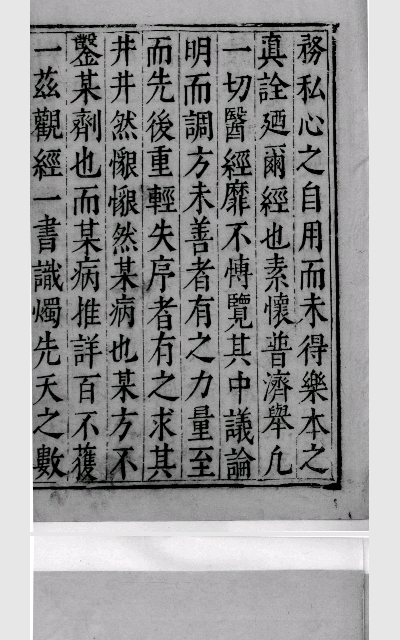 務私心之自用而未得樂本之
真詮廼爾經也素懷普濟舉凡
一切醫經靡不愽覽其中議論
明而調方未善者有之力量至
而先後重輕失序者有之求其
井井然懇懇然某病也某方不
鑿某劑也而某病推詳百不獲
一茲觀經一書識燭先天之數